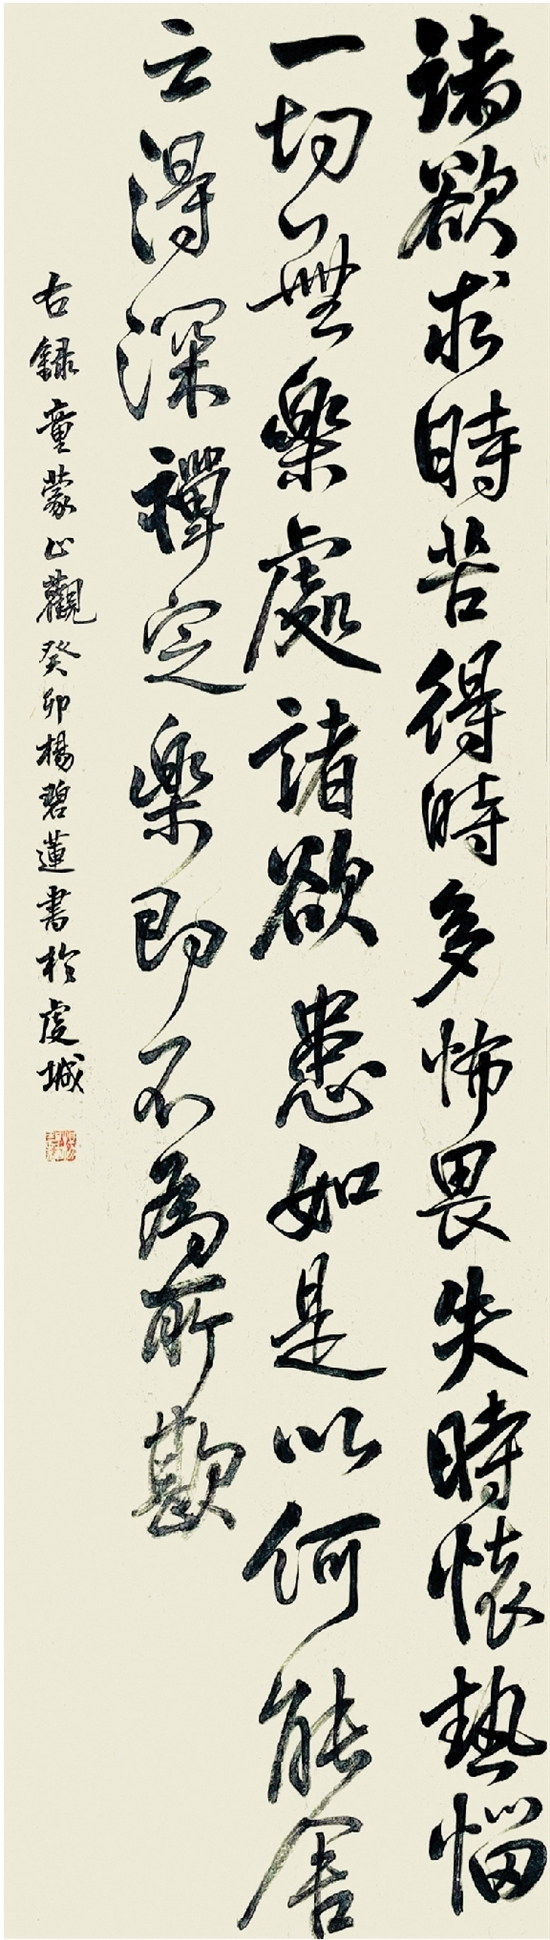 諸欲求時苦得時多怖畏失時懷熱惱
一切無樂處諸欲患如是以何能舍
之得深禪定樂即不為所欺
右錄童蒙止觀癸卯楊碧蓮書於虔城